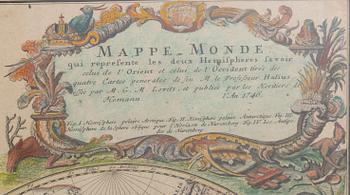 MAPPE-MONDE
qui represente les deux Hemispheres savoir
celui de l'Orient et celui de l'Occident tirée des
quatre Cartes generales de feu M. le Professeur Hasius
par M. G. M. Lowitz, et publiée par les Heritiers de
Homann. l'An 1746.
Fig. I. Hemisphere polaire Arctique. Fig. II. Hemisphere polaire Antarctique. Fig. III.
Hemisphere de la Sphere oblique pour l'Horizon de Nuremberg. Fig. IV.
de Nuremberg